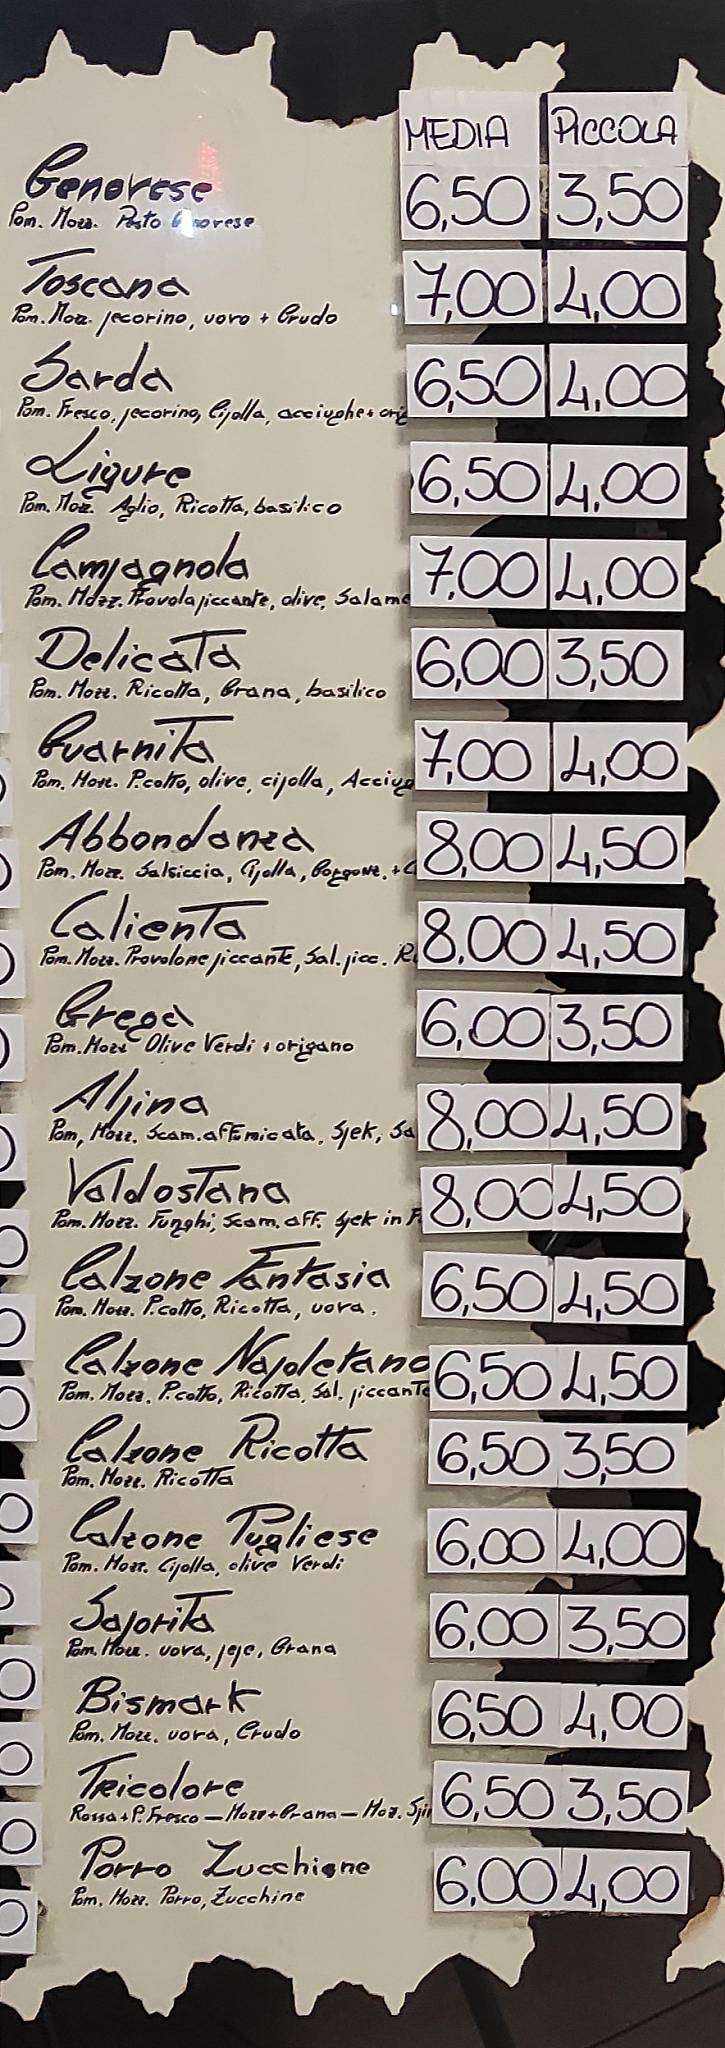 MEDIA PICCOLA
Genovese 6,50 3,50
Pom. Mozz. Pesto Genovese
Toscana 7,00 4,00
Pom. Mozz. pecorino, uovo + Crudo
Sarda 6,50 4,00
Pom. Fresco, pecorino, Cipolla, acciughe + orig
Ligure 6,50 4,00
Pom. Mozz. Aglio, Ricotta, basilico
Campagnola 7,00 4,00
Pom. Mozz. Provola piccante, olive, Salame
Delicata 6,00 3,50
Pom. Mozz. Ricotta, Grana, basilico
Guarnita 7,00 4,00
Pom. Mozz. P.cotto, olive, cipolla, Acciug
Abbondanza 8,00 4,50
Pom. Mozz. Salsiccia, Cipolla, Gorgonz. +
Calienta 8,00 4,50
Pom. Mozz. Provolone piccante, Sal. picc. Ri
Greca 6,00 3,50
Pom. Mozz Olive Verdi + origano
Alpina 8,00 4,50
Pom, Mozz. Scam. affumicata, Spek, Sa
Valdostana 8,00 4,50
Pom. Mozz. Funghi, Scam. aff. Spek in
Calzone Fantasia 6,50 4,50
Pom. Mozz. P.cotto, Ricotta, uova.
Calzone Napoletano 6,50 4,50
Pom. Mozz. P.cotto, Ricotta, Sal. piccante
Calzone Ricotta 6,50 3,50
Pom. Mozz. Ricotta
Calzone Pugliese 6,00 4,00
Pom. Mozz. Cipolla, olive Verdi
Saporita 6,00 3,50
Pom. Mozz. uova, pepe, Grana
Bismark 6,50 4,00
Pom. Mozz. uova, Crudo
Tricolore 6,50 3,50
Rossa + P. Fresco — Mozz + Grana — Moz. Spin
Porro Zucchine 6,00 4,00
Pom. Mozz. Porro, Zucchine